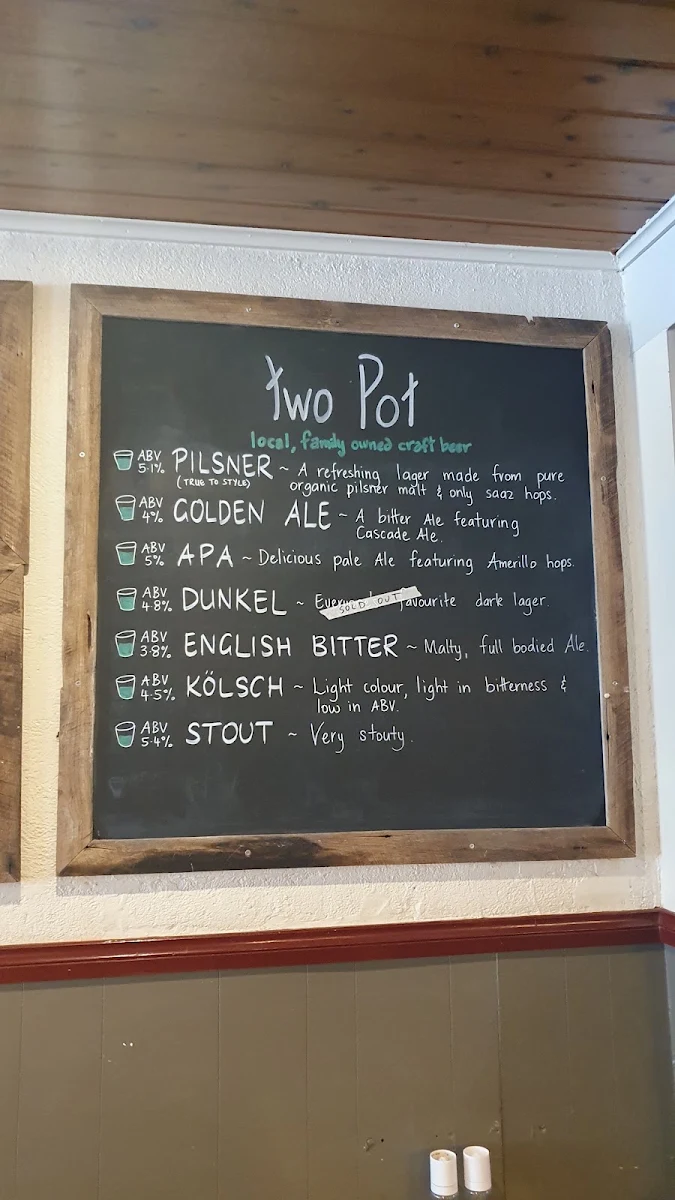 two Pot
local, family owned craft beer
ABV 5.1% PILSNER ~ A refreshing lager made from pure
(TRUE TO STYLE) organic pilsner malt & only saaz hops.
ABV 4% GOLDEN ALE ~ A bitter Ale featuring
Cascade Ale.
ABV 5% APA ~ Delicious pale Ale featuring Amerillo hops.
ABV 4.8% DUNKEL ~ SOLD OUT favourite dark lager.
ABV 3.8% ENGLISH BITTER ~ Malty, full bodied Ale.
ABV 4.5% KÖLSCH ~ Light colour, light in bitterness &
low in ABV.
ABV 5.4% STOUT ~ Very stouty.